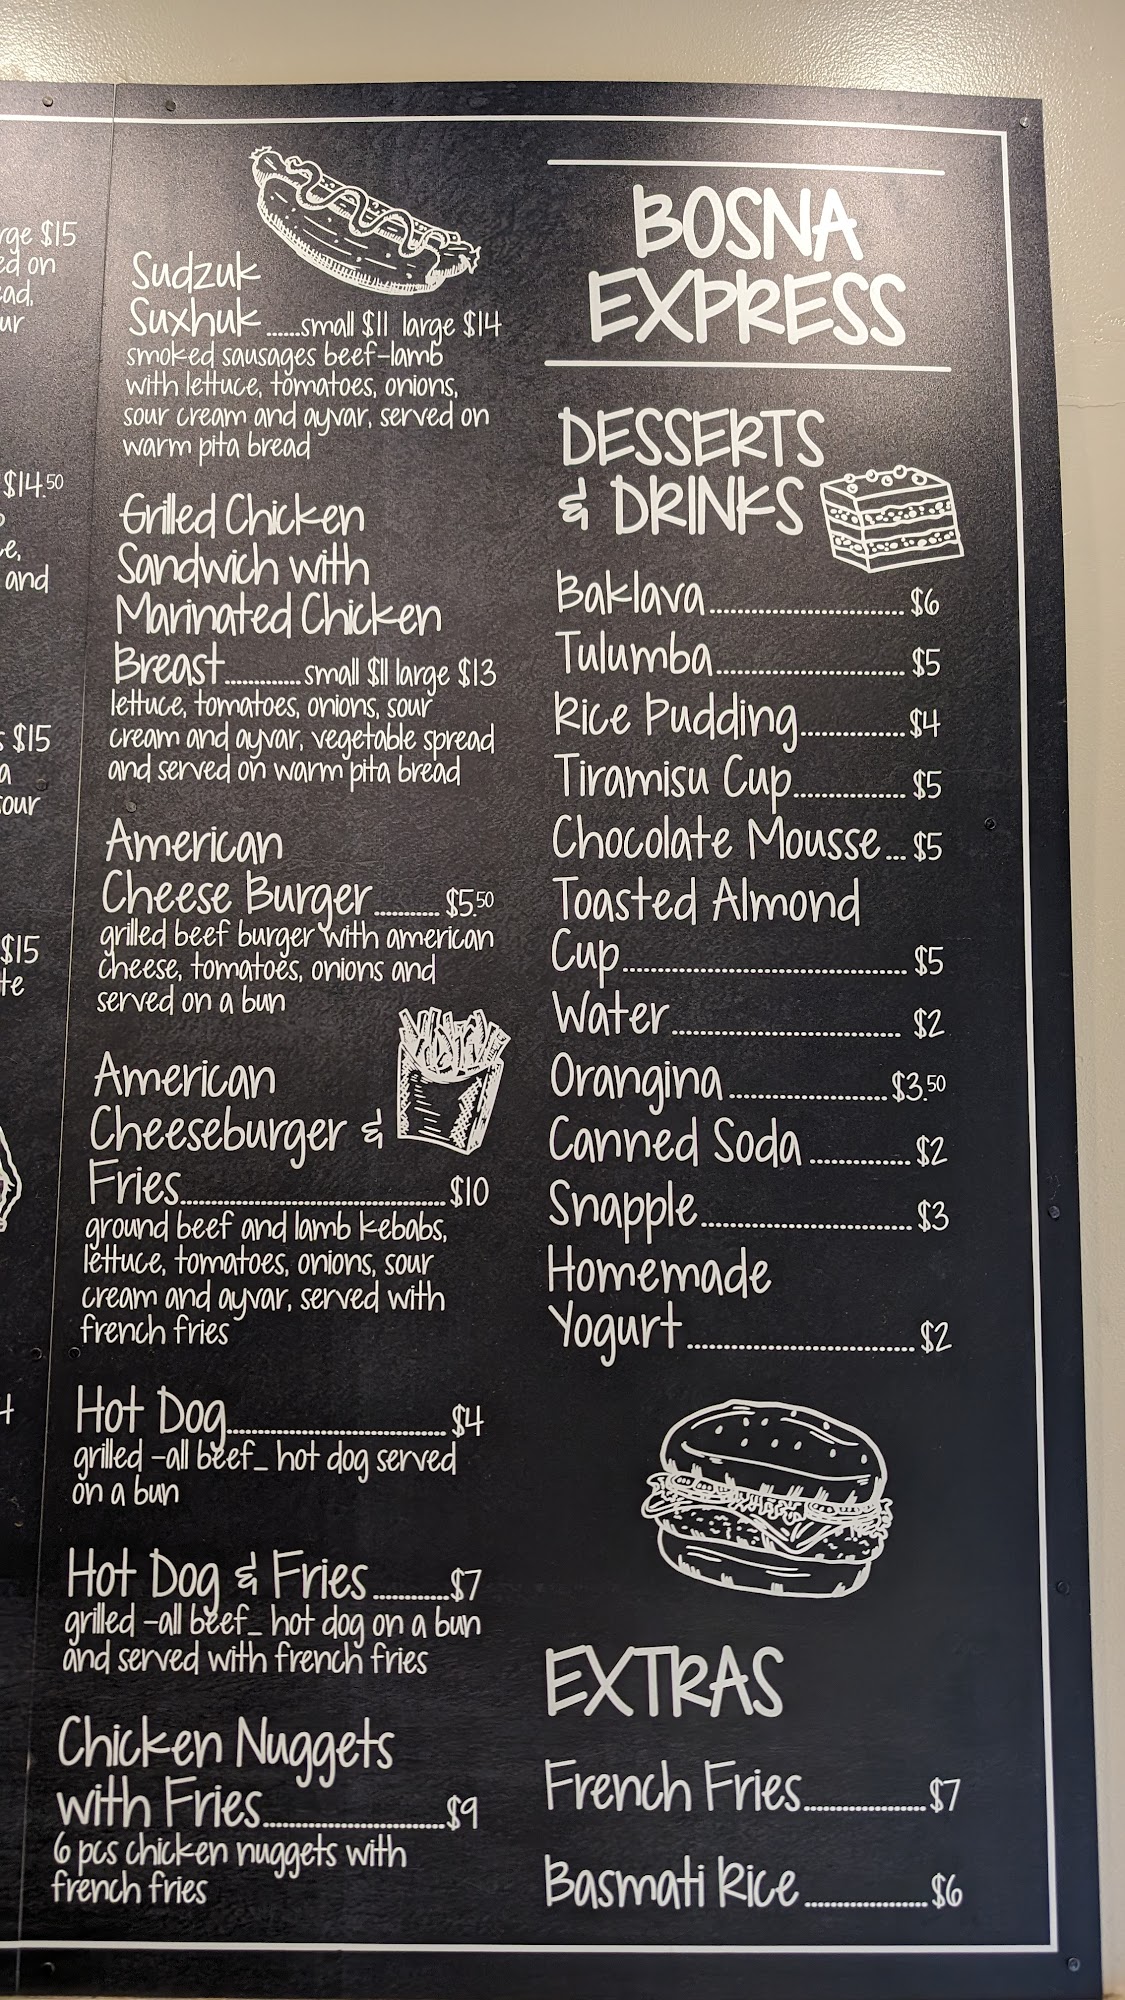 $15
ed on
$14.50
and
$15
$15
Sudzuk
Suxhuk......small $11 large $14
smoked sausages beef-lamb
with lettuce, tomatoes, onions,
sour cream and ayvar, served on
warm pita bread
Grilled Chicken
Sandwich with
Marinated Chicken
Breast.............small $11 large $13
lettuce, tomatoes, onions, sour
cream and ayvar, vegetable spread
and served on warm pita bread
American
Cheese Burger........... $5.50
grilled beef burger with american
cheese, tomatoes, onions and
served on a bun
American
Cheeseburger &
Fries............................................. $10
ground beef and lamb kebabs,
lettuce, tomatoes, onions, sour
cream and ayvar, served with
french fries
Hot Dog..................................... $4
grilled -all beef_ hot dog served
on a bun
Hot Dog & Fries.............$7
grilled -all beef_ hot dog on a bun
and served with french fries
Chicken Nuggets
with Fries...............................$9
6 pcs chicken nuggets with
french fries
BOSNA
EXPRESS
DESSERTS
& DRINKS
Baklava................................. $6
Tulumba................................ $5
Rice Pudding.................. $4
Tiramisu Cup................... $5
Chocolate Mousse... $5
Toasted Almond
Cup................................................ $5
Water....................................... $2
Orangina...........................$3.50
Canned Soda................. $2
Snapple.................................... $3
Homemade
Yogurt...................................... $2
EXTRAS
French Fries.....................$7
Basmati Rice.....................$6